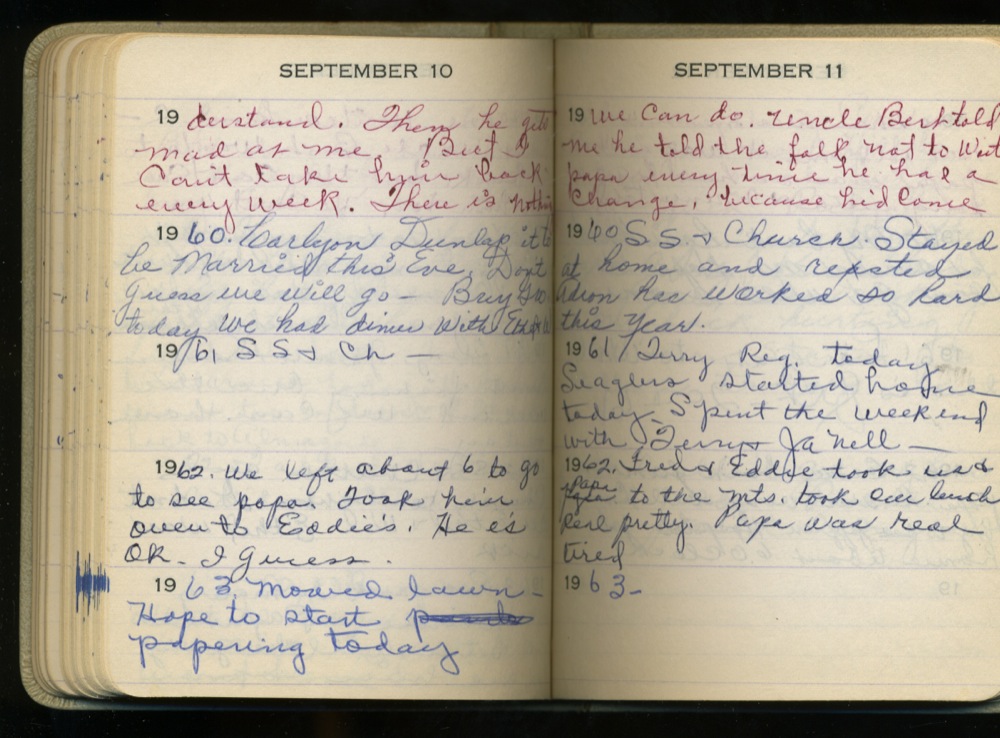 SEPTEMBER 10
19 derstand. Then he gets
mad at me. But I
Can't take him back
every week. There is nothin
19 60. Carlyon Dunlap is to
be Married this Eve. Don't
guess we will go — Busy too
today We had dinner with
19/61 S S & Ch —
1962. We left about 6 to go
to see papa. Took him
over to Eddie's. He is
OK. I Guess.
19 63. Mowed lawn -
Hope to start
papering today
SEPTEMBER 11
19 we can do. Uncle Bert told
me he told the folk not to Wait
papa every time he had a
Change, because he'd come
19 60 S S. & Church. Stayed
at home and rested
has worked so hard
this year.
19 61/ Terry Reg. today
Seaglers started home
today Spent the weekend
with Terry & Ja'Nell —
1962. Fred & Eddie took us &
Papa to the mts. took our lunch
real pretty. Papa was real
tired
19 63-